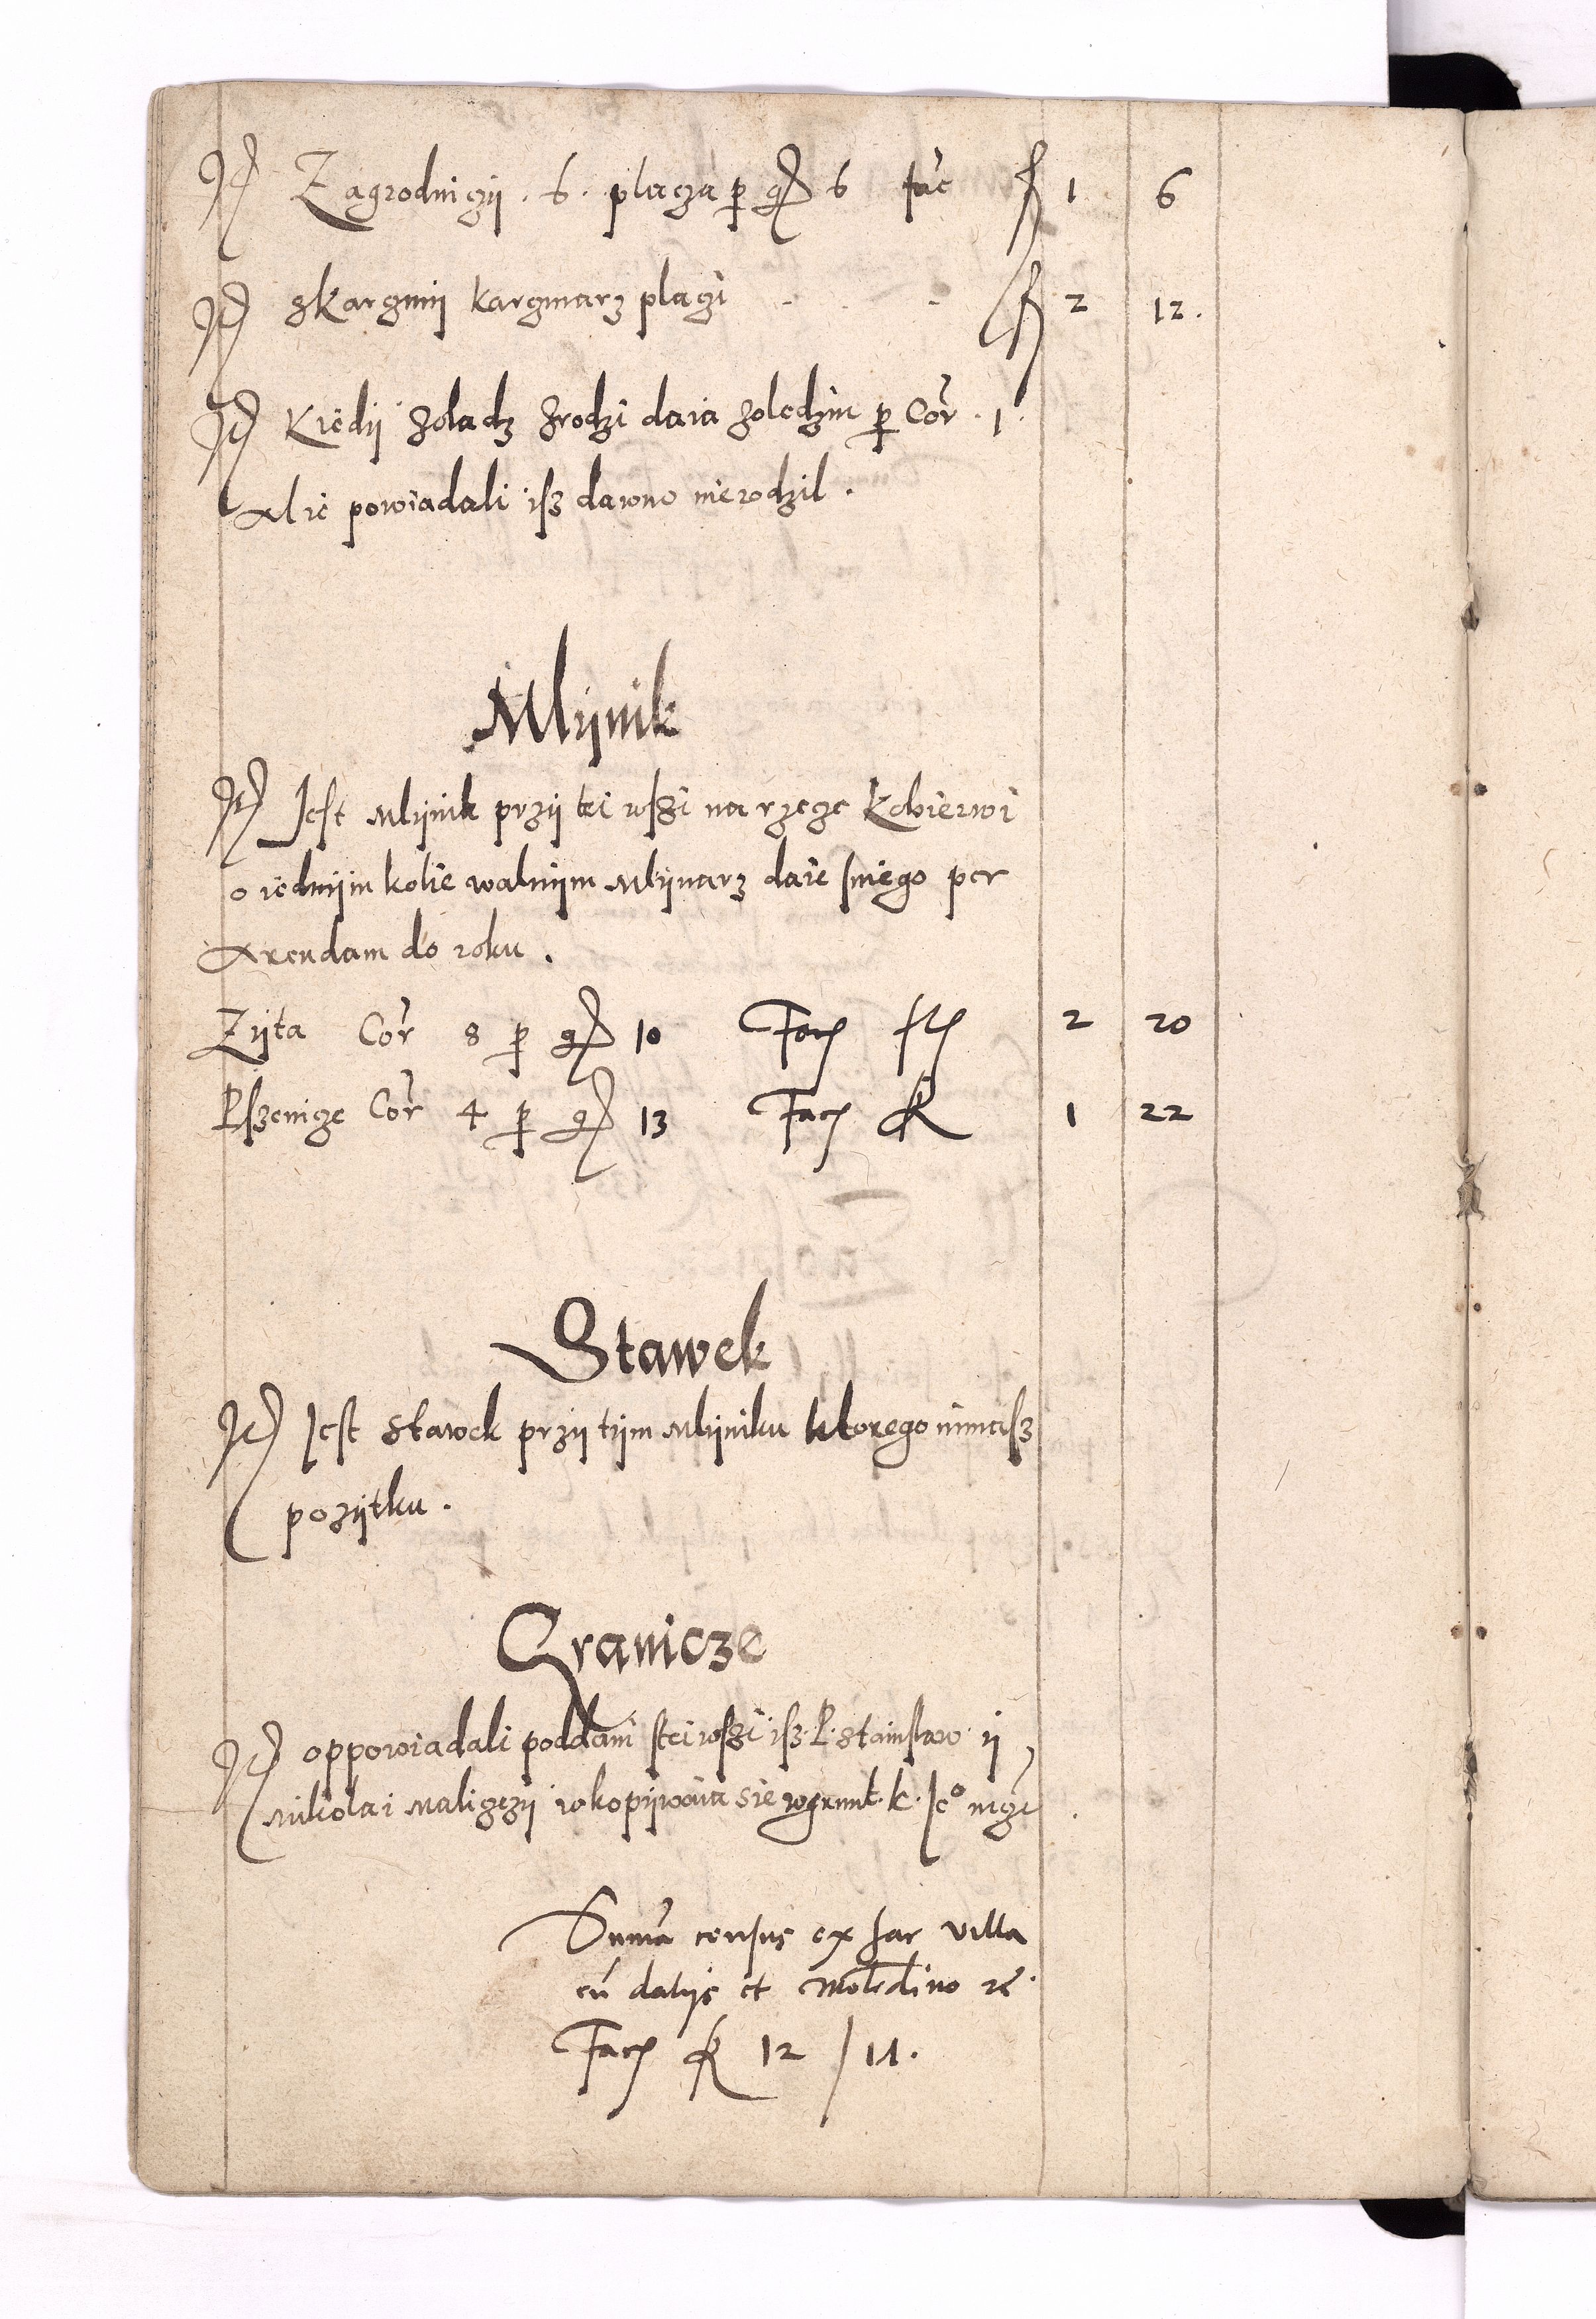 It Zagrodniczij . 6 . placzą p gr 6 fac f 1 6
It skarczmij karczmarz placzi f 2 12 .
It Kiedij żoladz zrodzi daia zoledzm p Cor . 1
Alie powiadali isz dawno nierodzil .
Mlijnik
It Jest Mlijnik przij tei wszi na rzecze Kobierwi
o iednijm kolie walnijm Mlijnarz daie sniego per
Arendam do roku .
Zijta Cor 8 p gr 10 Facit 2 20
Pszenicze Cor 4 p gr 13 Facit 1 22
Stawek
It Jest stawek przij tijm Mlijniku ktorego nimasz
pozijtku .
Granicze
It oppowiadali poddani stei wszi isz . P . stanislaw ij
Mikolai Maligczij wkopijwaia sie wgrunt . K . Jeº
Suma census ex hac villa
cu datijs et Molendino
Facit 12 / 11 .